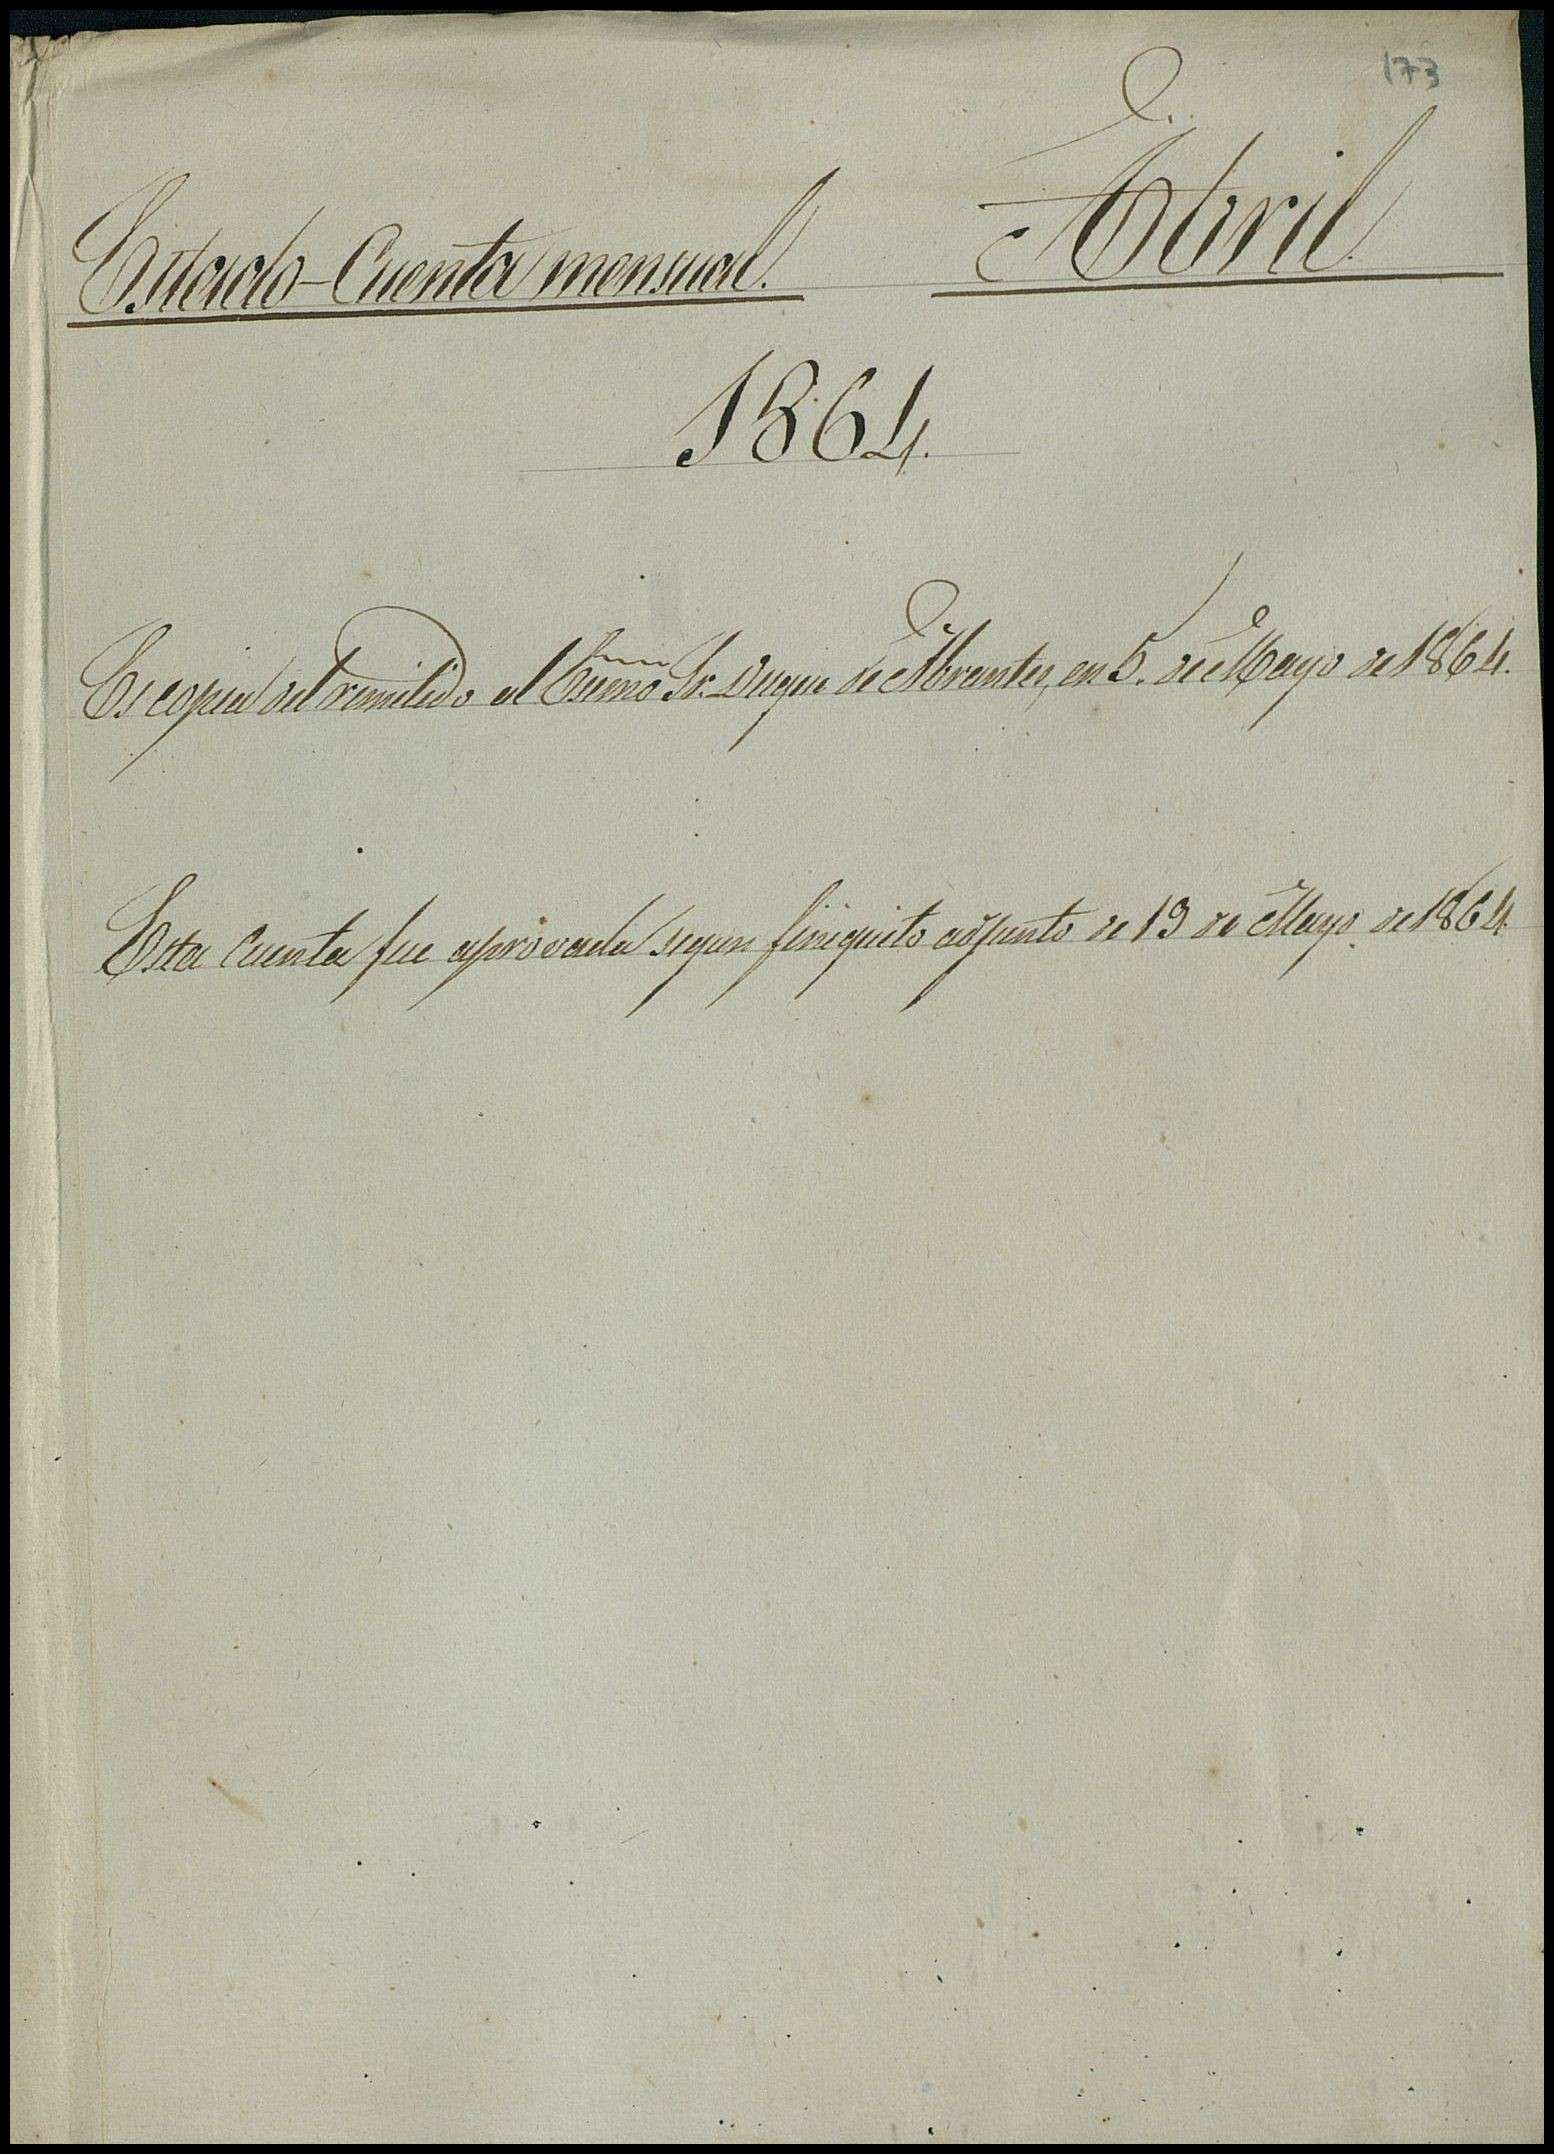 173
Estado-Cuenta mensual. Abril.
1864.
Es copia del remitido al Exmo Sr. Duque de Abrantes, en 5. de Mayo de 1864.
Esta Cuenta fue aprovada segun finiquito adjunto de 19 de Mayo de 1864.